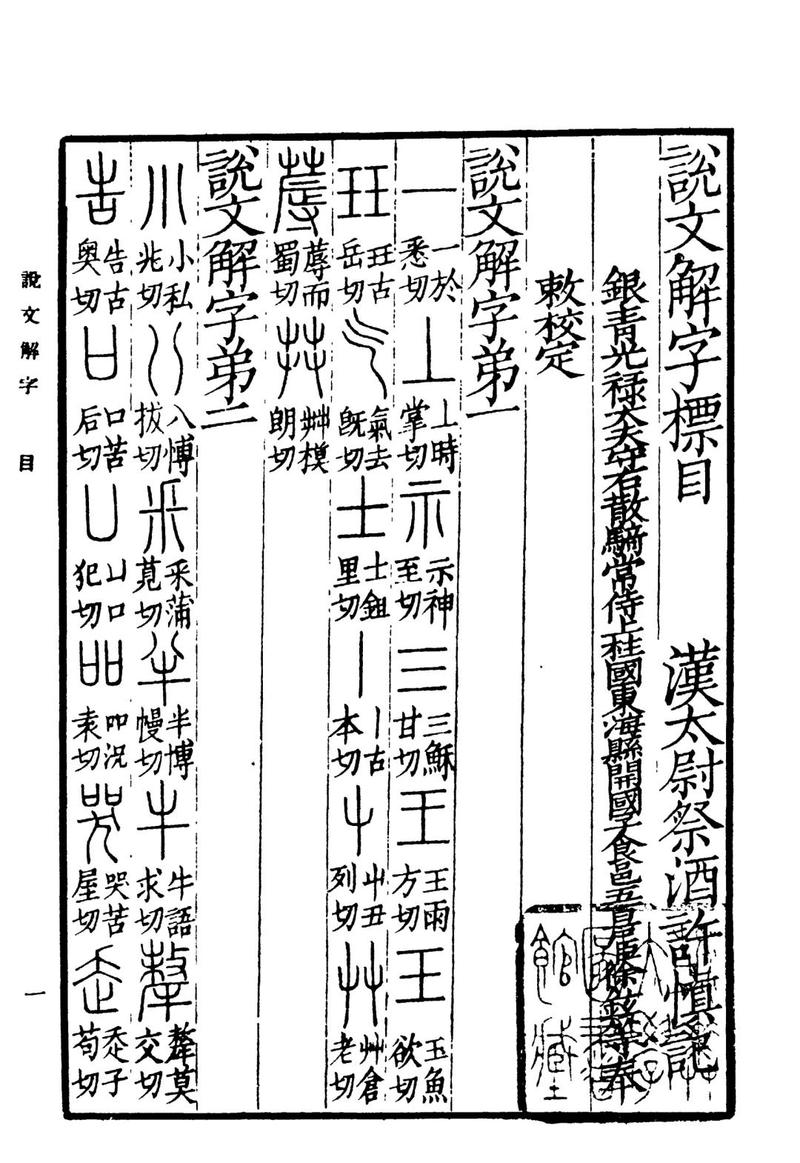 說文解字標目 漢太尉祭酒許慎記
銀青光祿大夫守右散騎常侍上柱國東海縣開國子食邑五百戶臣徐鉉等奉
敕校定
說文解字弟一
一 一於悉切 丄 丄時掌切 示 示神至切 三 三穌甘切 王 王雨方切 玉 玉魚欲切
玨 玨古岳切 气 氣去旣切 士 士鉏里切 丨 丨古本切 屮 屮丑列切 艸 艸倉老切
蓐 蓐而蜀切 茻 茻模朗切
說文解字弟二
小 小私兆切 八 八博拔切 釆 釆蒲莧切 半 半博幔切 牛 牛語求切 犛 犛莫交切
告 告古奧切 口 口苦后切 凵 凵口犯切 吅 吅況袁切 哭 哭苦屋切 走 走子苟切
說文解字 目 一
館藏